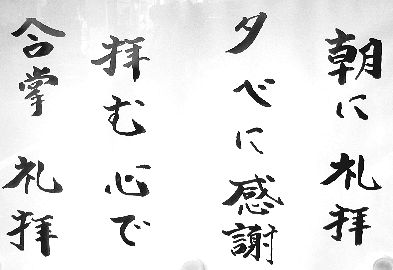 朝に礼拝
夕べに感謝
拝む心で
合掌礼拝